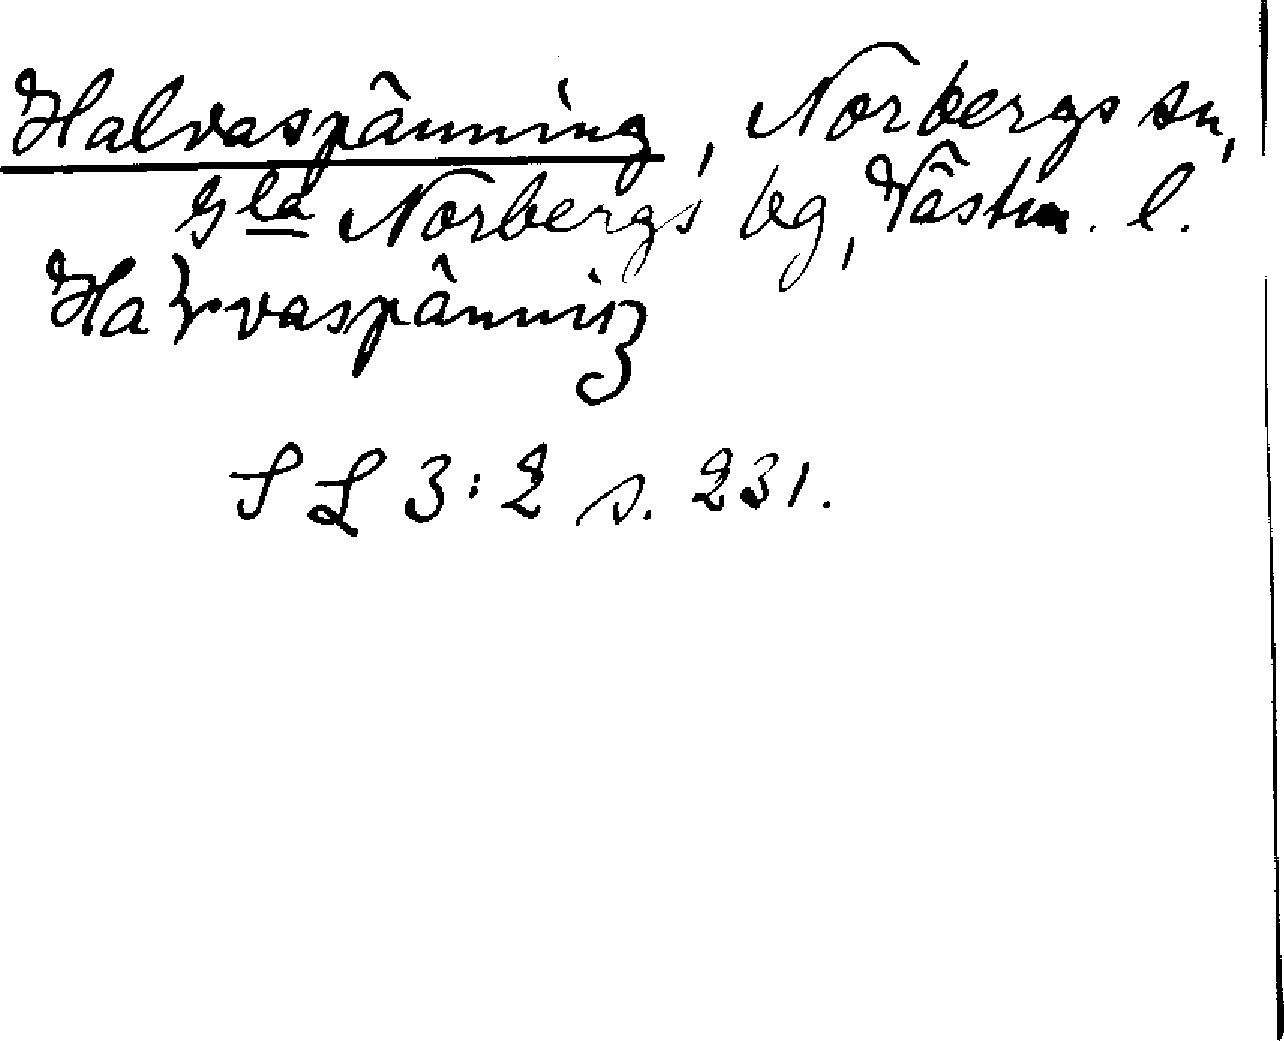 Halvaspänning, Norbergs sn,
Gla Norbergs bg, Västm. l.
Halvaspänniŋ
S L 3:2 s. 231.